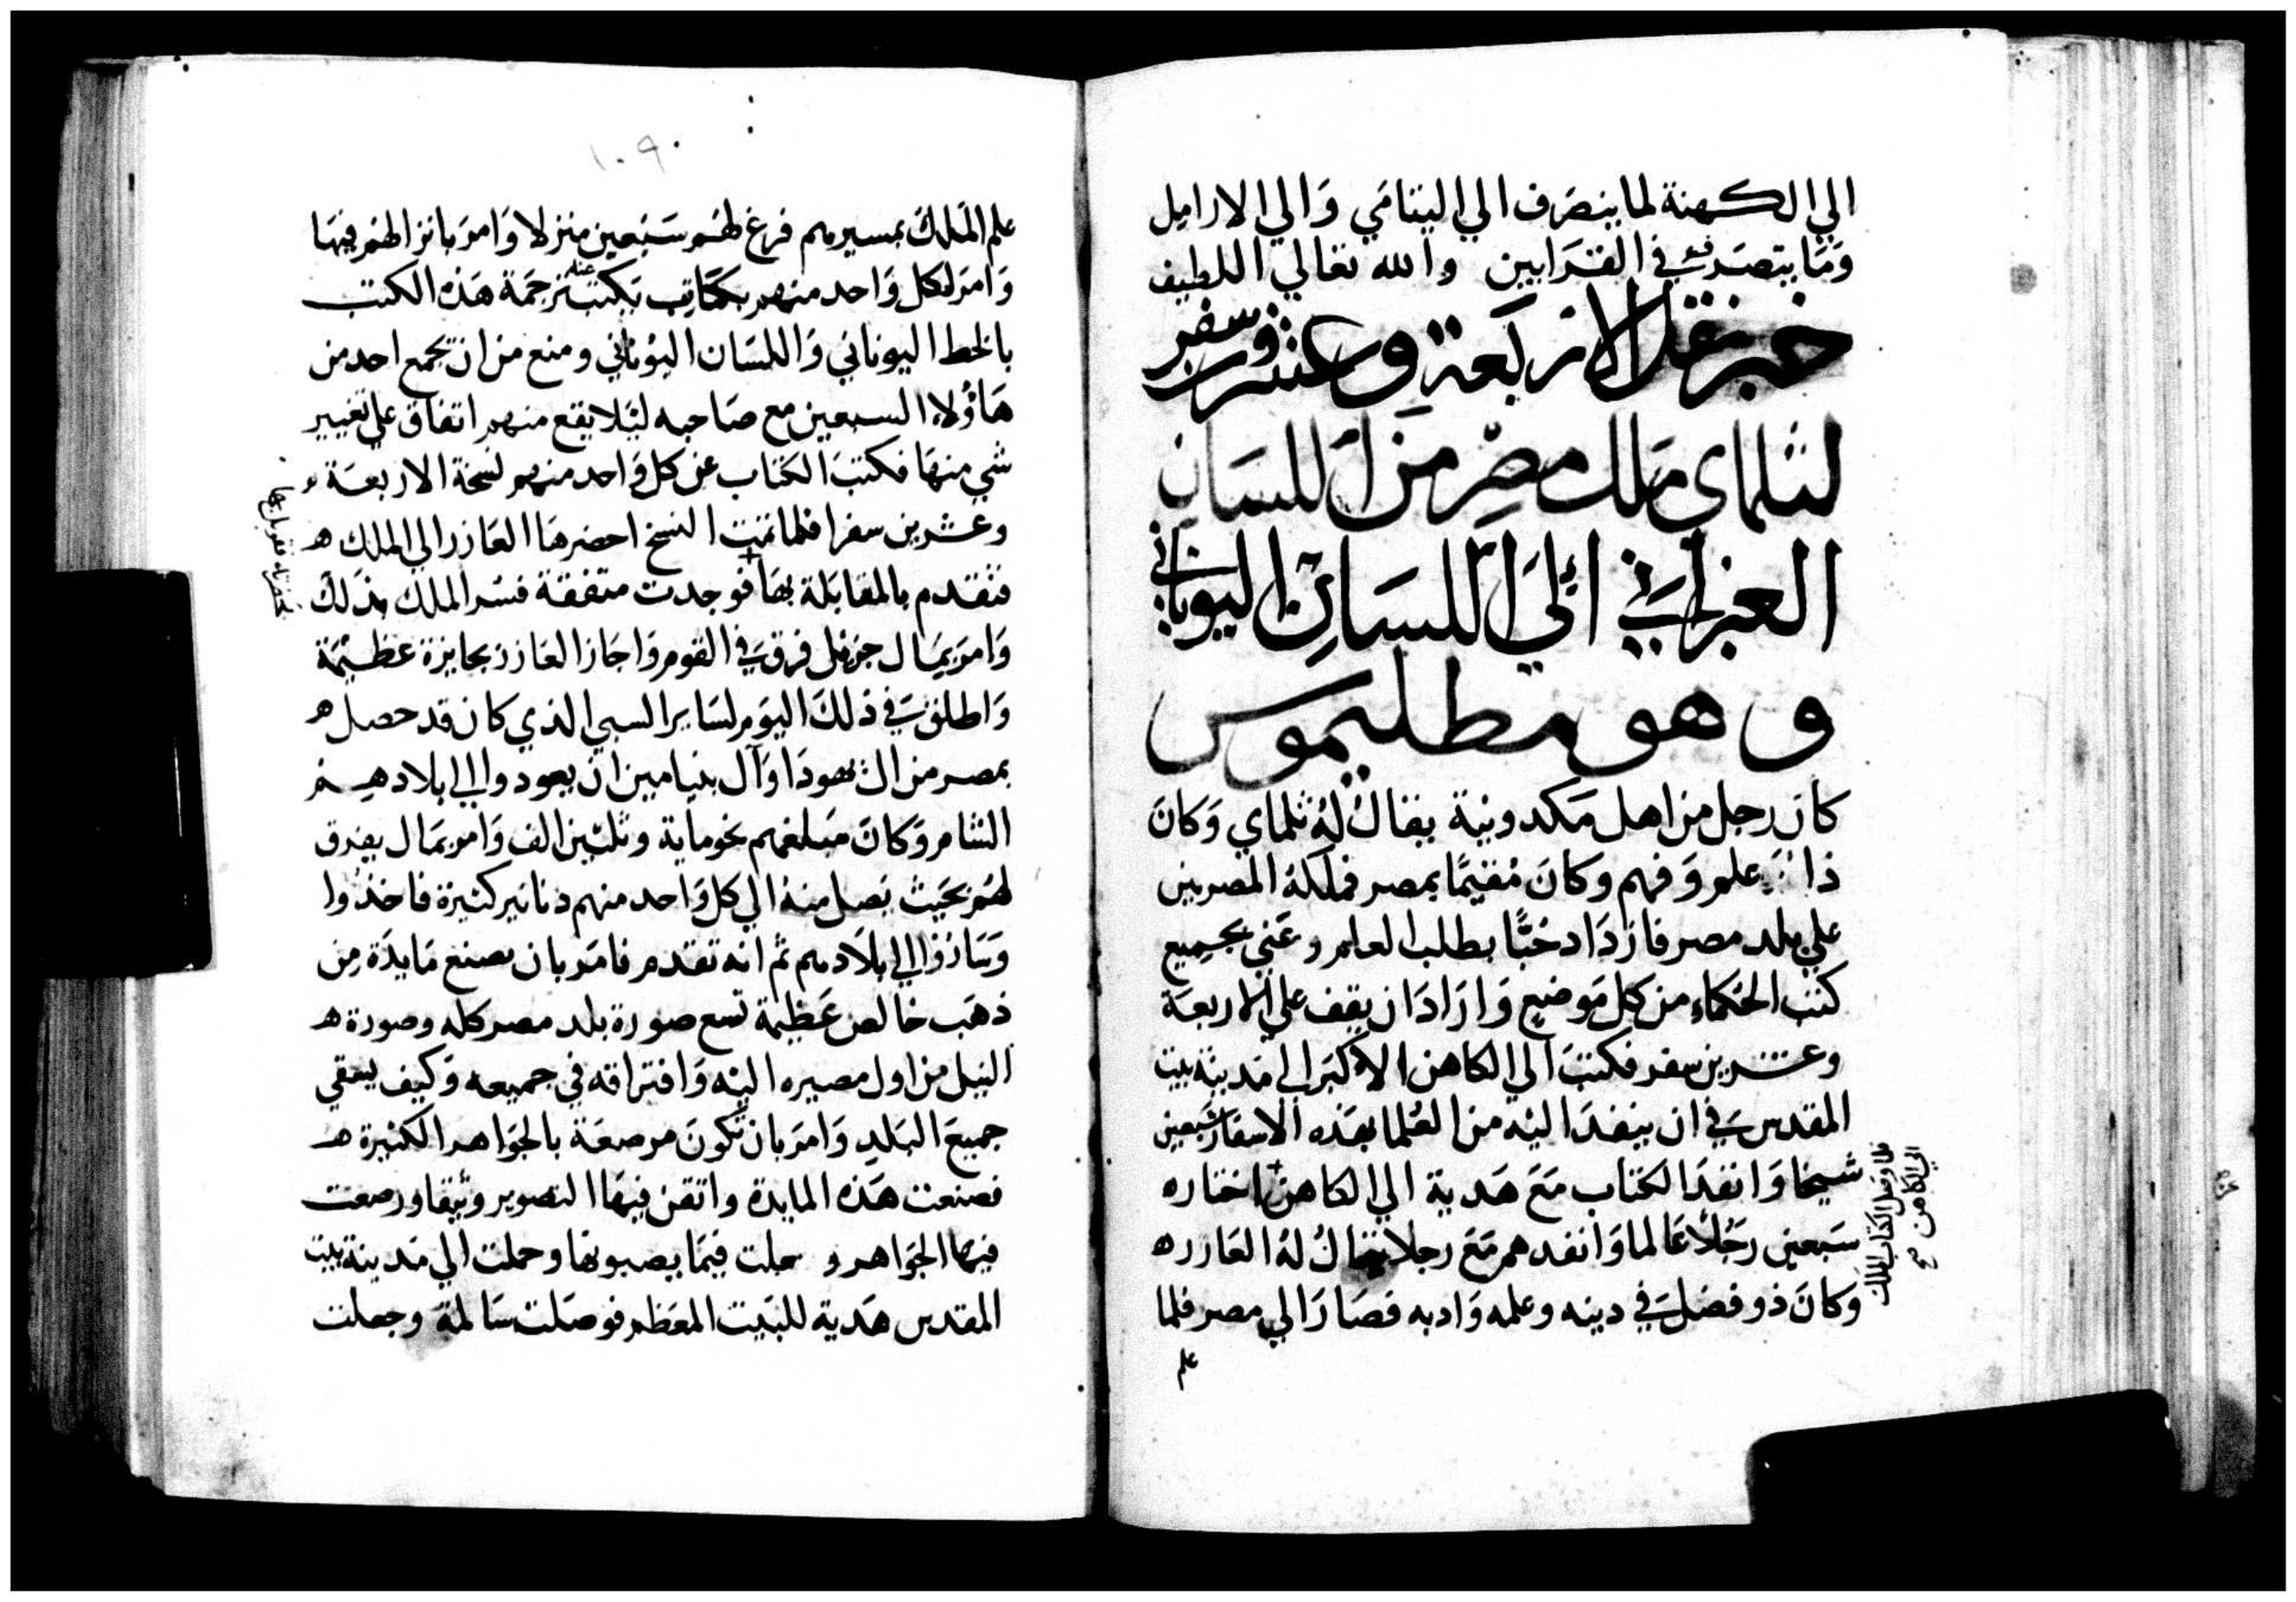 الي الكهنة لما ينصرف الي اليتامي وَالي الارامل
وَمَا يتصرف في القرَابين والله تعالي اللطيف
خبر نقل الاربعة وعشرين سفر
لتلماي ملك مصر من اللسان
العبراني الي اللسان اليوناني
وهو مطليموس
كان رجل من اهل مَكدونية يقال لهُ تلماي وَكانَ
ذا علم وَفهم وكانَ مُقيمًا بمصر فملكهُ المصريين
علي بلد مصر فازدَاد حُبًّا بطلب العلم وعَني بجميع
كتب الحُكماءِ من كل مَوضعٍ وَارَادَ ان يقف علي الاربعة
وعشرين سفر فكتبَ الي الكاهن الاكبَر الي مَدينة بيت
المقدس في ان ينفدَ اليه من العُلما بهَذه الاسفار سَبعين
شيخا وَانفدَ الكتاب مَعَ هَدية الي الكاهن اختاره
سَبعين رجُلاً عَالما وَانفدهم مَعَ رجلا يقالُ لهُ العَازر ه
وَكانَ ذو فضل في دينه وعلمه وَادبه فصَارَ الي مصر فلما
فلما وصل الكتاب الملك
الي الكاهن صح
علم
١٠٩٠
علم الملك بمسيرهم فرغ لهُم سَبعين منزلا وَامرَ بانزالهُم فيهَا
وَامرَ لكل وَاحد منهم بكاتِب يكتب عنه ترجمَة هَذه الكتب
بالخط اليوناني وَاللسَان اليوُناني ومنع من ان يجمع احد من
هَاؤُلاء السبعين مع صَاحبه ليَلا يقع منهم اتفاق علي تغيير
شي منهَا فكتبَ الكتاب عن كل وَاحد منهم نسخة الاربعَة و
وعشرين سفرا فلما تمت النسخ احضرهَا العَازر الي الملك ه
فتقدم بالمقابَلة بهَا فوجدت متفقة فسُر الملك بذَلكَ
وَامرَ بمَال جزيل فرق في القوم وَاجَاز العَازر بجايزة عظيمَة
وَاطلق في ذلكَ اليَوم لسَاير السبي الذي كان قد حصل ه
بمصر من ال يهودَا وَآل بنيامين ان يعودوا الي بلادهم
الشام وَكانَ مَبلغهم نحو ماية وثلثين الف وَامر بمَال يفرق
لهُم بحَيث يصل منهُ الي كل وَاحد منهم دنانير كثيرة فاخذُوا
وَسَارُوا الي بلَادهم ثم انه تقدم فامرَ بان يصنع مَايدَة مِن
ذهَب خالص عَظيمَة تسع صورة بلد مصر كله وصورة ه
النيل من اول مصيره اليه وَافتراقه في جميعه وَكيف يسقي
جميعَ البَلد وَامرَ بان تكونَ مرصعَة بالجوَاهر الكثيرة ه
فصنعت هَذه المايدة واتقن فيهَا التصوير وثيقا ورصعت
فيهَا الجوَاهر و حملت فيمَا يصبونها وحملت الي مَدينة بيت
المقدس هَدية للبَيت المعَظم فوصَلت سَالمَة وجعلت